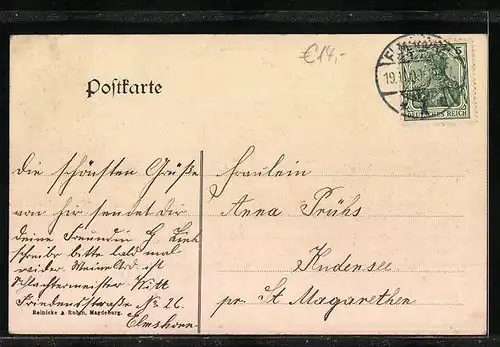 €14,-
Postkarte
ELMSHORN
19.11.
5
DEUTSCHES REICH
Die schönsten Grüße
von hir sendet dir
deine Freundin G. Link
schreibe bitte bald mal
wider. Meine ist
Schlachtermeister Witt
Friedenstraße No 26.
Elmshorn
Reinicke & Rubin, Magdeburg.
Fräulein
Anna Prühs
Kudensee
pr. St Magarethen